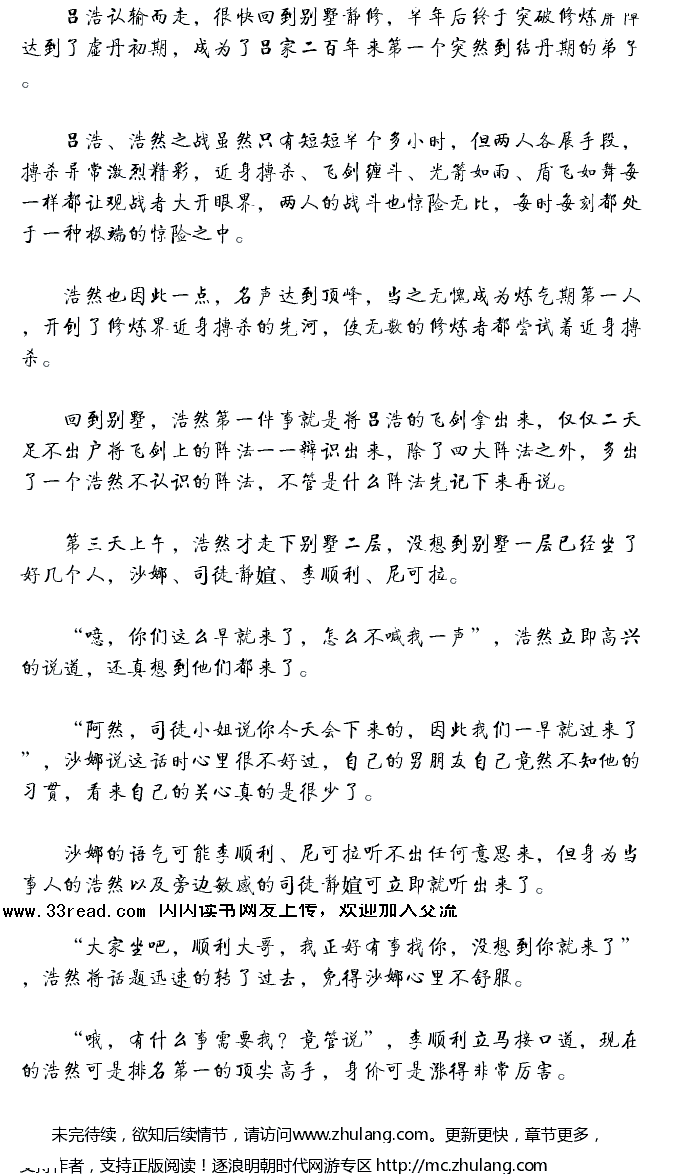 吕浩认输而走，很快回到别墅静修，半年后终于突破修炼屏障
达到了虚丹初期，成为了吕家二百年来第一个突然到结丹期的弟子
。
吕浩、浩然之战虽然只有短短半个多小时，但两人各展手段，
搏杀异常激烈精彩，近身搏杀、飞剑缠斗、光箭如雨、盾飞如舞每
一样都让观战者大开眼界，两人的战斗也惊险无比，每时每刻都处
于一种极端的惊险之中。
浩然也因此一点，名声达到顶峰，当之无愧成为炼气期第一人
，开创了修炼界近身搏杀的先河，使无数的修炼者都尝试着近身搏
杀。
回到别墅，浩然第一件事就是将吕浩的飞剑拿出来，仅仅二天
足不出户将飞剑上的阵法一一辩识出来，除了四大阵法之外，多出
了一个浩然不认识的阵法，不管是什么阵法先记下来再说。
第三天上午，浩然才走下别墅二层，没想到别墅一层已经坐了
好几个人，沙娜、司徒静媗、李顺利、尼可拉。
“噫，你们这么早就来了，怎么不喊我一声”，浩然立即高兴
的说道，还真想到他们都来了。
“阿然，司徒小姐说你今天会下来的，因此我们一早就过来了
”，沙娜说这话时心里很不好过，自己的男朋友自己竟然不知他的
习贯，看来自己的关心真的是很少了。
沙娜的语气可能李顺利、尼可拉听不出任何意思来，但身为当
事人的浩然以及旁边敏感的司徒静媗可立即就听出来了。
www.33read.com 闪闪读书网友上传，欢迎加入交流
“大家坐吧，顺利大哥，我正好有事找你，没想到你就来了”
，浩然将话题迅速的转了过去，免得沙娜心里不舒服。
“哦，有什么事需要我？竟管说”，李顺利立马接口道，现在
的浩然可是排名第一的顶尖高手，身价可是涨得非常厉害。
未完待续，欲知后续情节，请访问www.zhulang.com。更新更快，章节更多，
支持作者，支持正版阅读！逐浪明朝时代网游专区 http://mc.zhulang.com